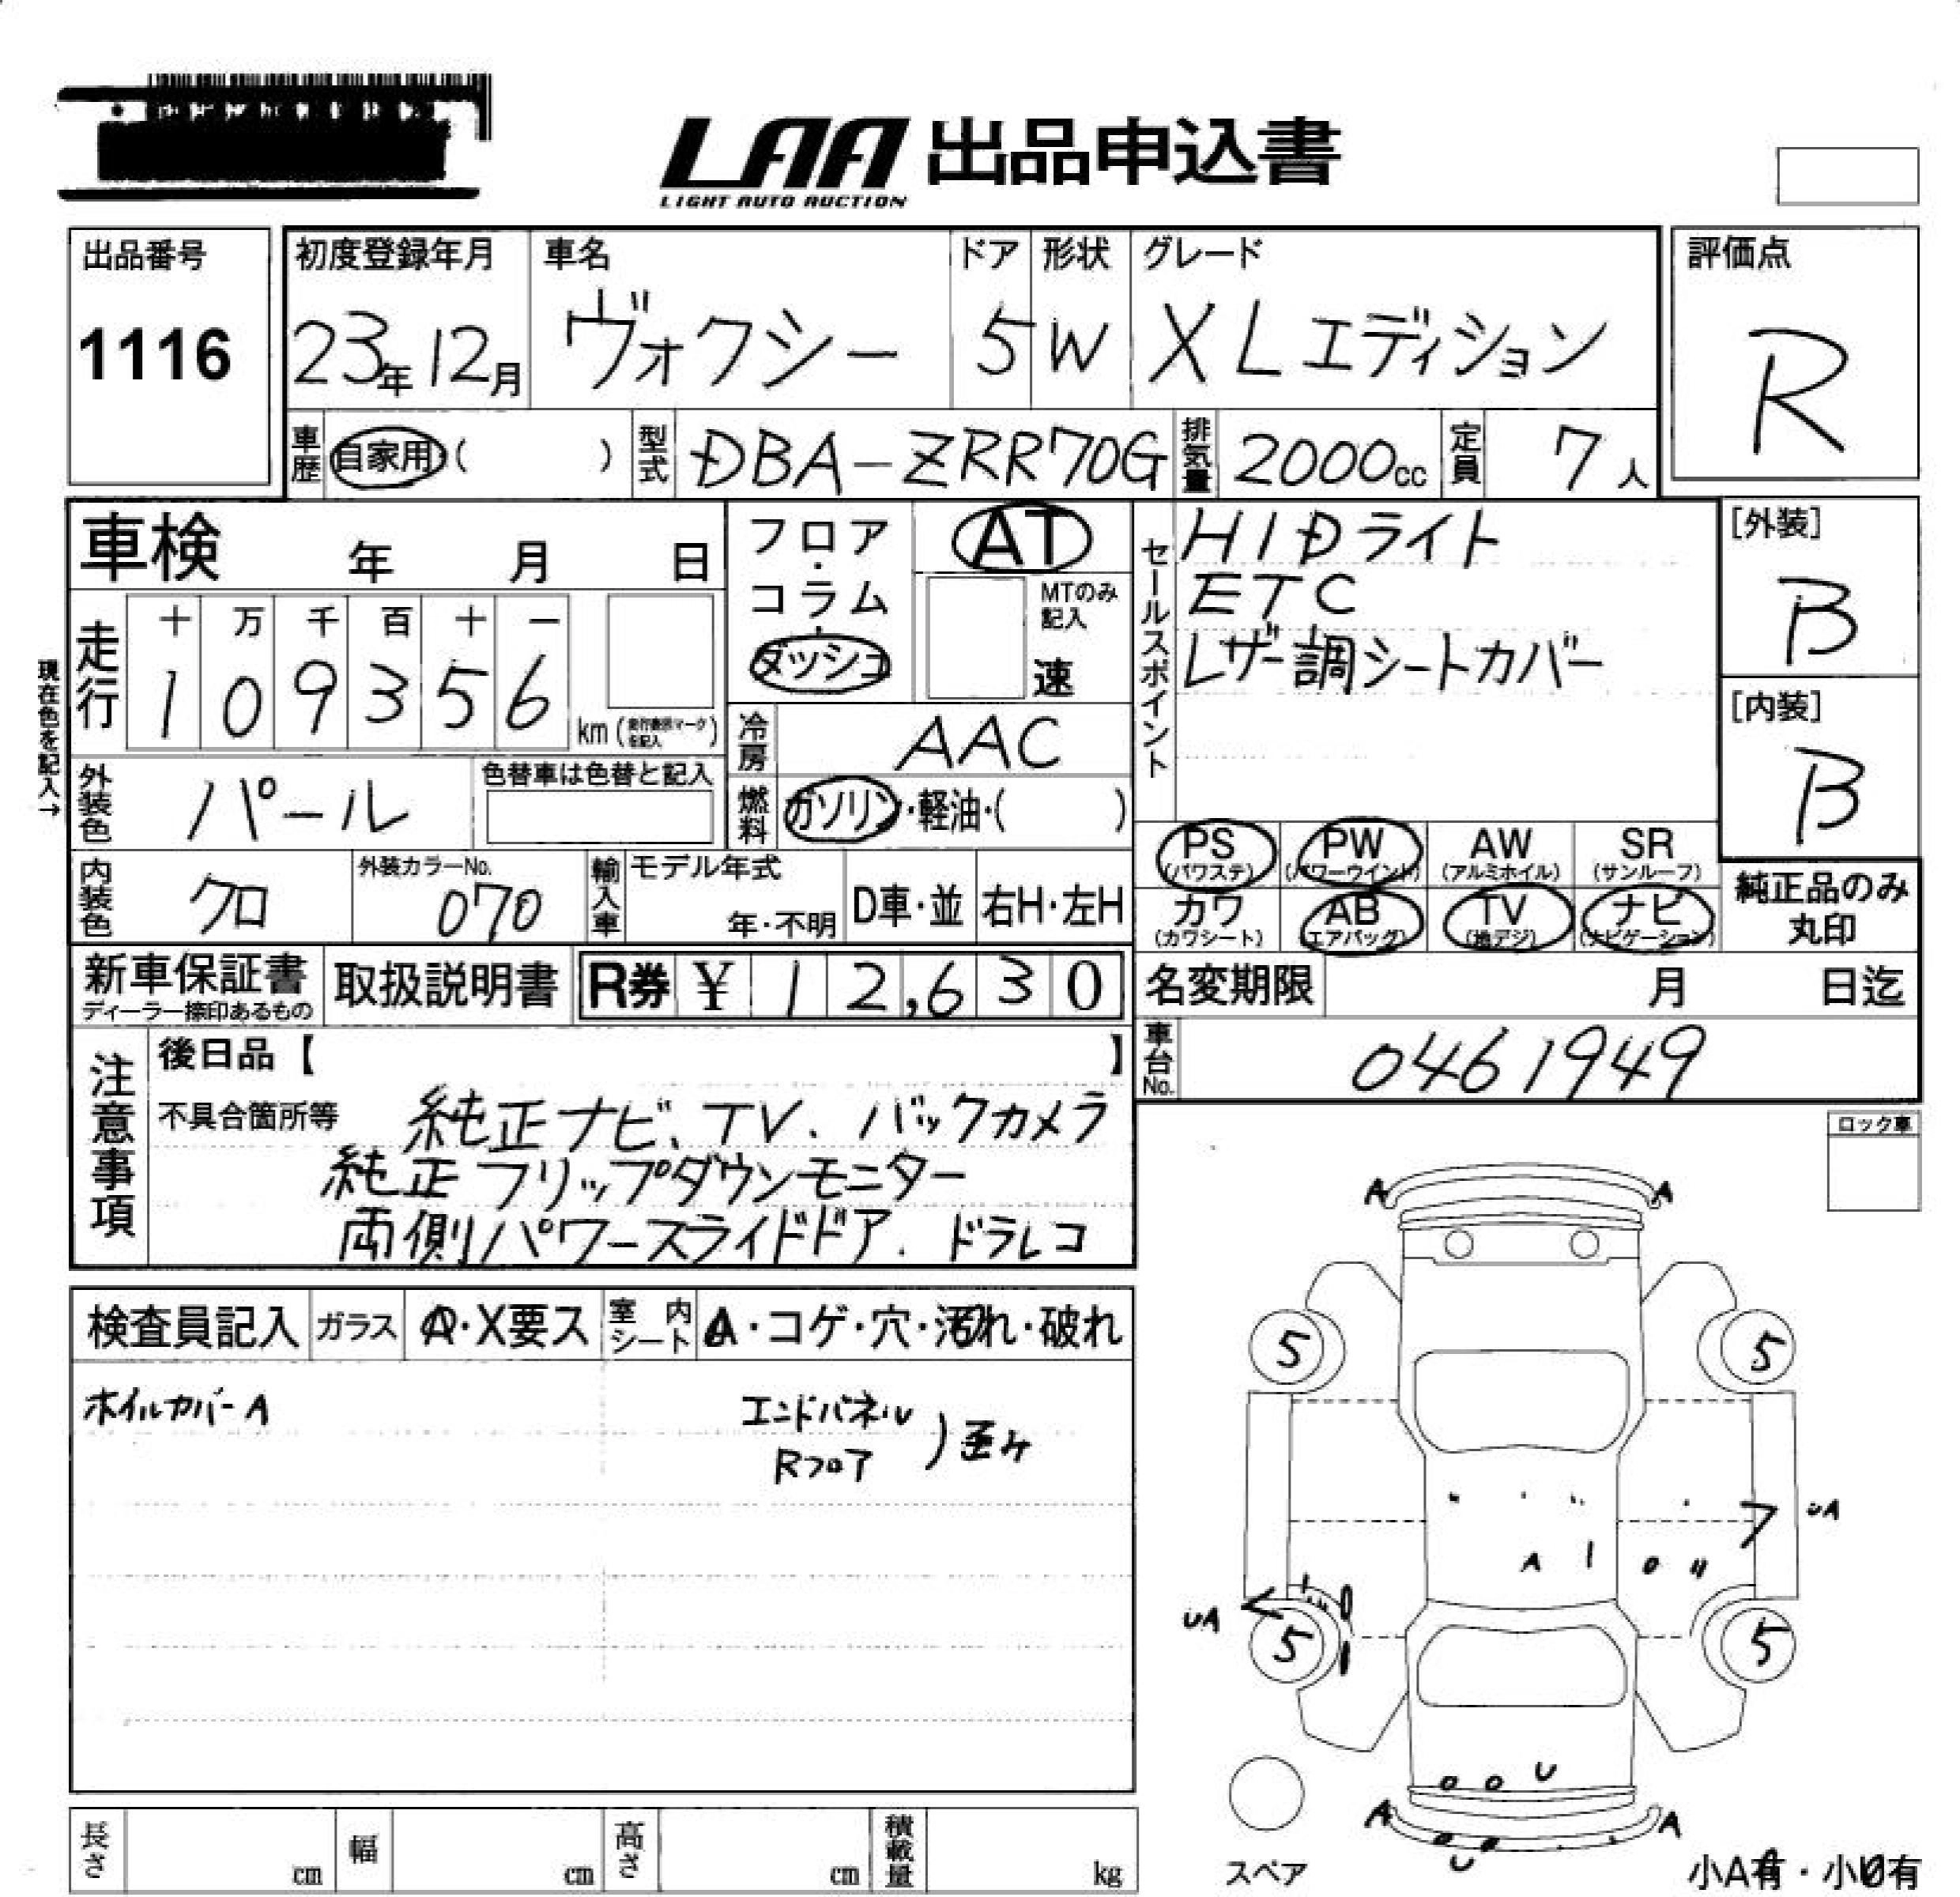 LAA 出品申込書
LIGHT AUTO AUCTION
出品番号
1116
初度登録年月
23年12月
車名
ヴォクシー
ドア
5
形状
W
グレード
XLエディション
評価点
R
車歴
自家用 ( )
型式
DBA-ZRR70G
排気量
2000cc
定員
7人
車検 年 月 日
フロア・コラム・ダッシュ
AT
MTのみ記入
速
セールスポイント
HIDライト
ETC
レザー調シートカバー
[外装]
B
[内装]
B
現在色を記入→
走行
十 万 千 百 十 一
1 0 9 3 5 6
km (走行表示マークを記入)
冷房
AAC
外装色
パール
色替車は色替と記入
燃料
ガソリン・軽油・( )
PS (パワステ)
PW (パワーウインド)
AW (アルミホイル)
SR (サンルーフ)
カワ (カワシート)
AB (エアバッグ)
TV (地デジ)
ナビ (ナビゲーション)
純正品のみ
丸印
内装色
クロ
外装カラーNo.
070
輸入車
モデル年式
年・不明
D車・並
右H・左H
新車保証書
ディーラー捺印あるもの
取扱説明書
R券 ¥ 12,630
名変期限 月 日迄
車台No.
0461949
注意事項
後日品【 】
不具合箇所等
純正ナビ、TV、バックカメラ
純正フリップダウンモニター
両側パワースライドドア、ドラレコ
ロック車
検査員記入
ガラス
A・X要ス
室内シート
A・コゲ・穴・汚れ・破れ
ホイルカバーA
エンドパネル
Rフロア
) 歪み
A A
5 5
UA
A
UA
5 5
U
A A
U
スペア
小A有・小U有
長さ cm
幅 cm
高さ cm
積載量 kg